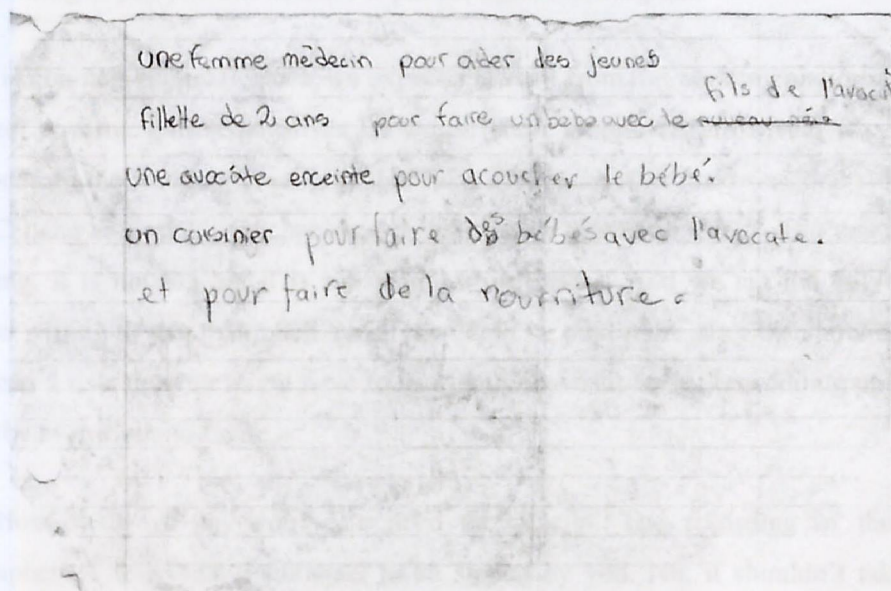 une femme médecin pour aider des jeunes
fils de l'avocat
fillette de 2 ans pour faire un bébé avec le nuveau père
une avocate enceinte pour acoucher le bébé.
un cuisinier pour faire des bébés avec l'avocate.
et pour faire de la nourriture.